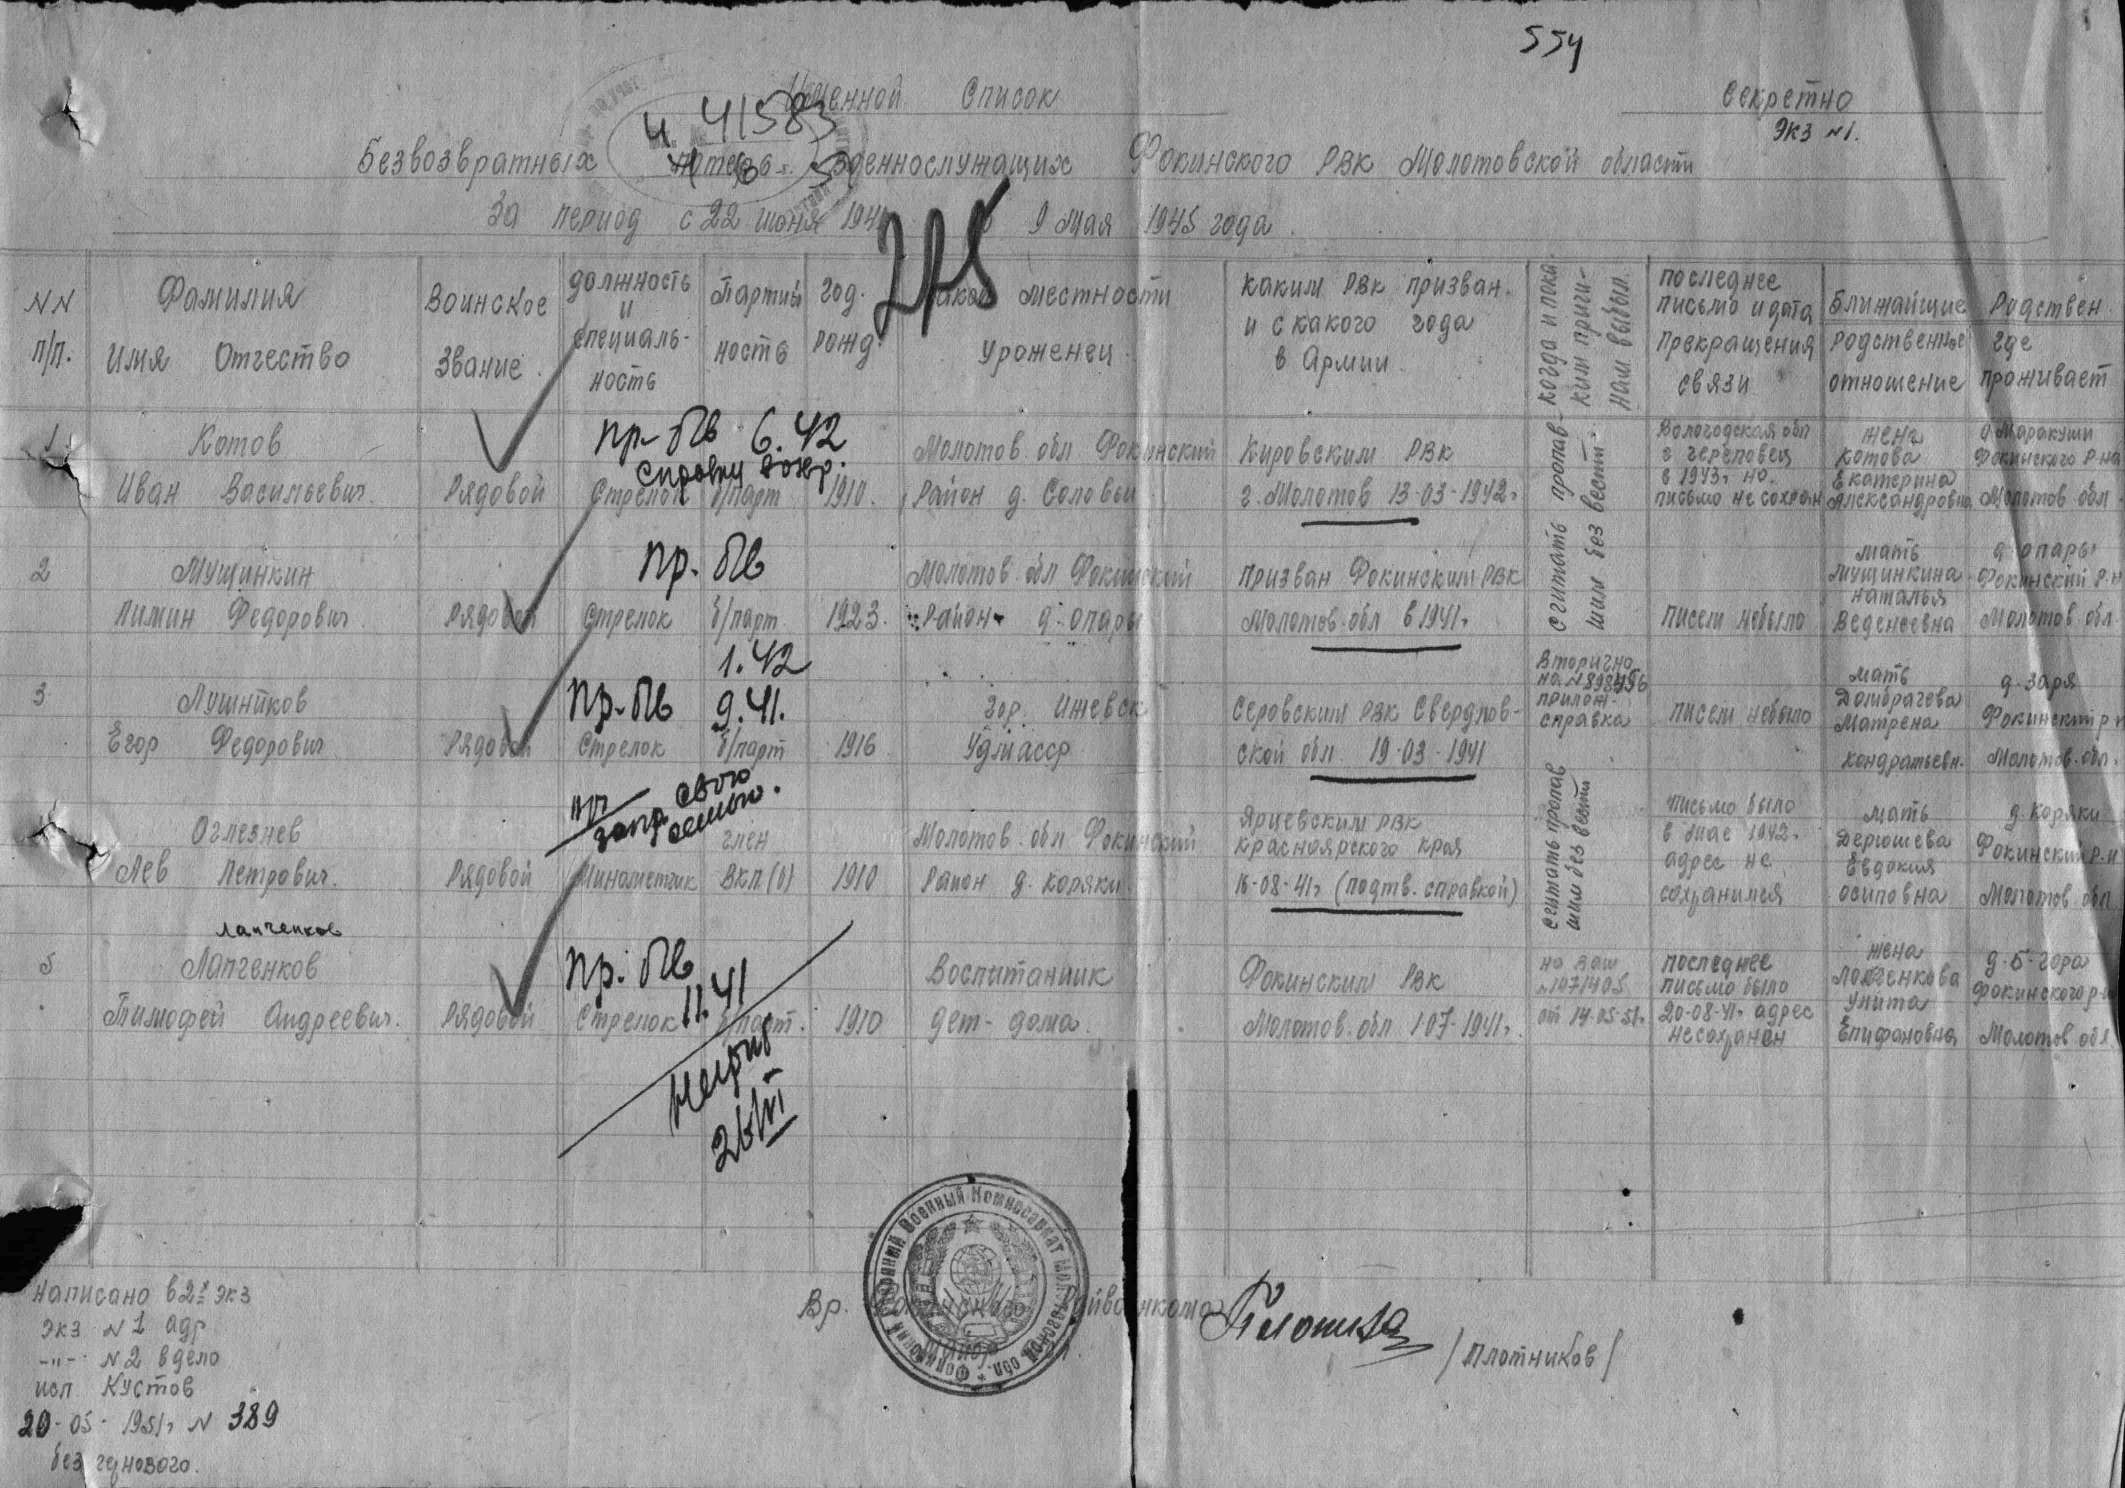 554
Именной Список
Секретно
Экз №1.
ч. 41583
Безвозвратных потерь военнослужащих Фокинского РВК Молотовской области
За период с 22 июня 1941 по 9 мая 1945 года.
NN п/п.
Фамилия Имя Отчество
Воинское звание.
должность и специаль-ность
Партий ность
год. рожд.
какой местности уроженец
каким РВК призван. и с какого года в Армии.
когда и по ка-ким причи-нам выбыл.
последнее письмо и дата прекращения связи
Ближайшие родственное отношение
Родствен. где проживает
1.
Котов
Иван Васильевич.
Рядовой
Стрелок
б/парт
1910.
Молотов. обл Фокинский
Район д. Соловьи
Кировским РВК
г. Молотов 13-03-1942г
Считать пропав-
шим без вести.
Вологодская обл
г череповец
в 1943г. но.
письмо не сохран
жена
Котова
Екатерина
Александровна
д Маракуши
Фокинского р-на
Молотов обл
пр-бв 6.42
справку
2
Мущинкин
Пимин Федорович.
Рядовой
Стрелок
б/парт.
1923.
Молотов обл Фокинский
Район д. опары
призван Фокинским РВК
Молотов. обл в 1941г
писем небыло
мать
мущинкина
Наталья
Веденеевна
д опары
Фокинский р-н
Молотов обл.
пр. бв
1.42
3
Лушников
Егор Федорович
Рядовой
Стрелок
б/парт
1916
гор. Ижевск
Удм асср
Серовским РВК Свердлов-
ской обл. 19-03-1941
Вторично
прилож-
справка
писем небыло
мать
Домбрачева
Матрена
кондратьевн.
д-Заря
Фокинский р н
Молотов. обл.
пр-бв 9.41.
Оглезнев
Лев Петрович.
Рядовой
Минометчик
член
ВКП(б)
1910
Молотов. обл Фокинский
Район д. коряки
Ярцевским РВК
красноярского края
15-08-41г (подтв. справкой)
считать пропав
шим без вести
письмо было
в мае 1942г.
адрес не
сохранился
мать
Дерюшева
Евдокия
осиповна
д. коряки
Фокинский р-н
Молотов обл
лапченков
5
Лапченков
Тимофей Андреевич.
Рядовой
Стрелок
б/парт.
1910
Воспитанник
дет-дома.
Фокинским РВК
Молотов. обл 107-1941г.
на ваш
от 14-05-51г
последнее
письмо было
20-08-41г адрес
несохранен
жена
Лапченкова
Улита
Епифановна
д-Б-гора
Фокинского р-н
Молотов обл
пр. бв
11.41
Написано в 2х экз
Экз №1 адр
-"- №2 в дело
исп Кустов
20-05-1951г № 389
без чернового.
Вр. Фокинского Райвоенкома
/Плотников/
Фокинский Районный Военный Комиссариат Молотовской обл.